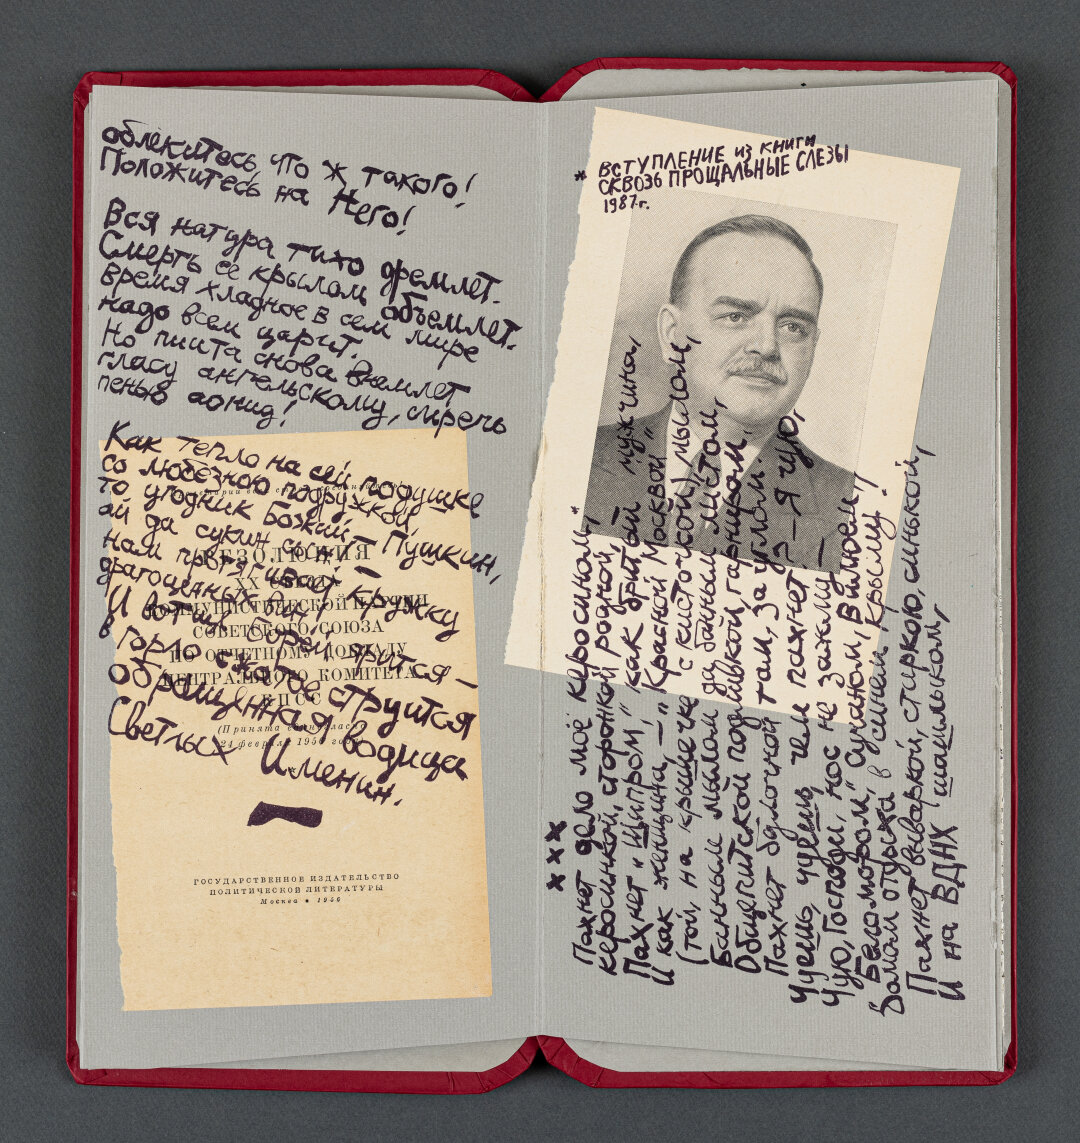 облекитесь, что ж такого!
Положитесь на Него!
Вся натура тихо дремлет.
Смерть ее крылом объемлет.
время хладное в сем мире
надо всем царит.
Но пиита снова внемлет
гласу ангельскому, сиречь
пенью аонид!
Как тепло на сей подушке
со любезною подружкой
то угодник Божий – Пушкин,
ай да сукин сын! –
нам протягивает кружку
драгоценных вин,
И вотще Борей ярится –
в горло
обращенная водица
Светлых Именин.
РЕЗОЛЮЦИЯ
XX СЪЕЗДА
КОММУНИСТИЧЕСКОЙ ПАРТИИ
СОВЕТСКОГО СОЮЗА
ПО ОТЧЕТНОМУ ДОКЛАДУ
ЦЕНТРАЛЬНОГО КОМИТЕТА
КПСС
(Принята единогласно
24 февраля 1956 года)
ГОСУДАРСТВЕННОЕ ИЗДАТЕЛЬСТВО
ПОЛИТИЧЕСКОЙ ЛИТЕРАТУРЫ
Москва • 1956
* ВСТУПЛЕНИЕ из книги
СКВОЗЬ ПРОЩАЛЬНЫЕ СЛЕЗЫ
1987 г.
ххх
Пахнет дело моё керосином,*
керосинкой, сторонкой родной,
Пахнет "Шипром", как бритый мужчина,
И как женщина, – "Красной Москвой"
(той, на крышечке с кисточкой), мылом,
Банным мылом да банным листом,
Общепитской подливкой, гарниром,
Пахнет булочной там, за углом.
Чуешь, чуешь, чем пахнет? – Я чую,
Чую, Господи, нос не зажму –
"Беломором", Сучаном, Вилюем,
Домом отдыха в синем Крыму!
Пахнет вываркой, стиркою, синькой,
И на ВДНХ шашлыком,